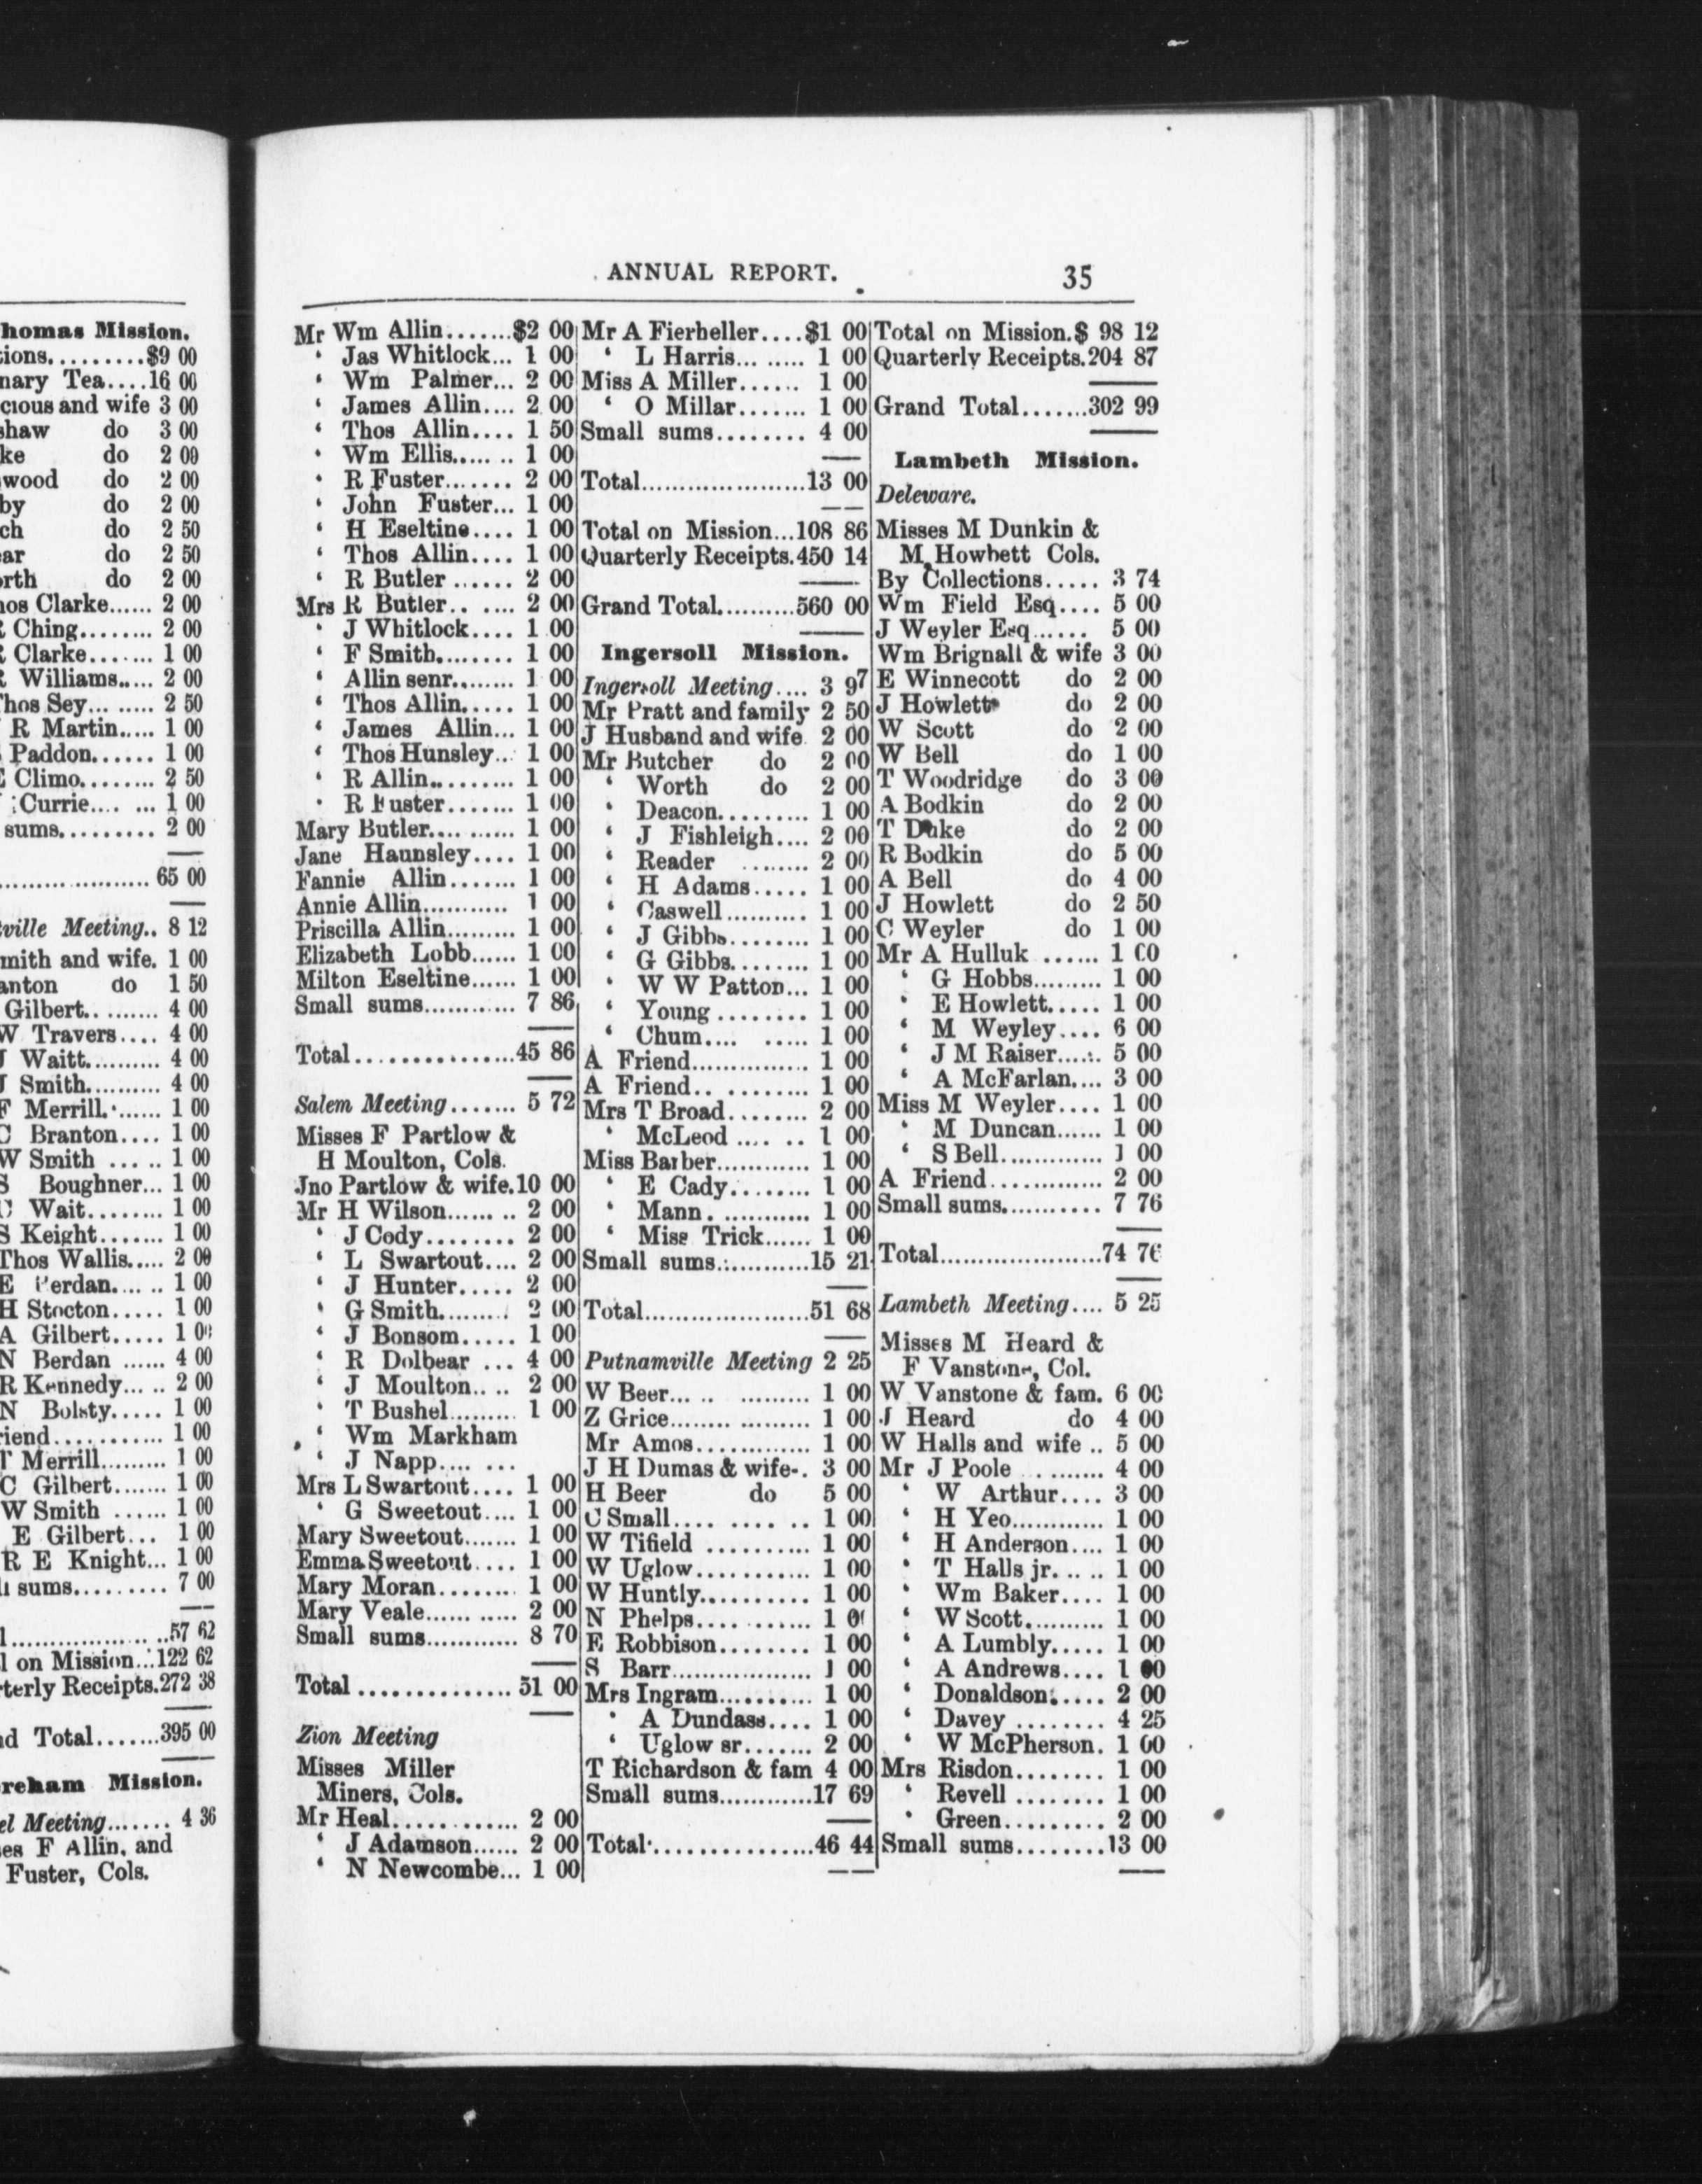 homas Mission.
tions.........$9 00
nary Tea....16 00
cious and wife 3 00
shaw do 3 00
ke do 2 00
wood do 2 00
by do 2 00
ch do 2 50
ar do 2 50
orth do 2 00
nos Clarke...... 2 00
Ching........ 2 00
Clarke....... 1 00
Williams..... 2 00
hos Sey... ..... 2 50
R Martin..... 1 00
Paddon...... 1 00
Climo........ 2 50
Currie.... ... 1 00
sums......... 2 00
.................... 65 00
ville Meeting.. 8 12
mith and wife. 1 00
anton do 1 50
Gilbert.. ....... 4 00
W Travers.... 4 00
J Waitt.......... 4 00
J Smith.......... 4 00
F Merrill....... 1 00
C Branton.... 1 00
W Smith ... .. 1 00
S Boughner... 1 00
C Wait........ 1 00
S Keight....... 1 00
Thos Wallis..... 2 00
E Perdan.... .. 1 00
H Stocton..... 1 00
A Gilbert..... 1 00
N Berdan ...... 4 00
R Kennedy... .. 2 00
N Bolsty..... 1 00
riend........... 1 00
T Merrill......... 1 00
C Gilbert....... 1 00
W Smith ...... 1 00
E Gilbert... 1 00
R E Knight... 1 00
sums......... 7 00
l.....................57 62
l on Mission...122 62
terly Receipts.272 38
nd Total.......395 00
reham Mission.
el Meeting....... 4 36
es F Allin, and
Fuster, Cols.
ANNUAL REPORT. 35
Mr Wm Allin.......$2 00
‘ Jas Whitlock... 1 00
‘ Wm Palmer... 2 00
‘ James Allin.... 2 00
‘ Thos Allin.... 1 50
‘ Wm Ellis..... .. 1 00
‘ R Fuster....... 2 00
‘ John Fuster... 1 00
‘ H Eseltine.... 1 00
‘ Thos Allin.... 1 00
‘ R Butler ...... 2 00
Mrs R Butler.. .... 2 00
‘ J Whitlock.... 1 00
‘ F Smith......... 1 00
‘ Allin senr........ 1 00
‘ Thos Allin..... 1 00
‘ James Allin... 1 00
‘ Thos Hunsley.. 1 00
‘ R Allin.......... 1 00
‘ R Fuster....... 1 00
Mary Butler.... ...... 1 00
Jane Haunsley.... 1 00
Fannie Allin....... 1 00
Annie Allin........... 1 00
Priscilla Allin......... 1 00
Elizabeth Lobb...... 1 00
Milton Eseltine...... 1 00
Small sums............ 7 86
Total................45 86
Salem Meeting....... 5 72
Misses F Partlow &
H Moulton, Cols.
Jno Partlow & wife.10 00
Mr H Wilson...... .. 2 00
‘ J Cody........ 2 00
‘ L Swartout.... 2 00
‘ J Hunter..... 2 00
‘ G Smith........ 2 00
‘ J Bonsom..... 1 00
‘ R Dolbear ... 4 00
‘ J Moulton.. .. 2 00
‘ T Bushel......... 1 00
‘ Wm Markham
‘ J Napp.... ...
Mrs L Swartout.... 1 00
‘ G Sweetout.... 1 00
Mary Sweetout....... 1 00
Emma Sweetout.... 1 00
Mary Moran........ 1 00
Mary Veale...... ..... 2 00
Small sums............ 8 70
Total ............... 51 00
Zion Meeting
Misses Miller
Miners, Cols.
Mr Heal............. 2 00
‘ J Adamson...... 2 00
‘ N Newcombe... 1 00
Mr A Fierheller....$1 00
‘ L Harris... ..... 1 00
Miss A Miller...... 1 00
‘ O Millar....... 1 00
Small sums........ 4 00
Total......................13 00
Total on Mission...108 86
Quarterly Receipts.450 14
Grand Total..........560 00
Ingersoll Mission.
Ingersoll Meeting.... 3 97
Mr Pratt and family 2 50
J Husband and wife. 2 00
Mr Butcher do 2 00
‘ Worth do 2 00
‘ Deacon......... 1 00
‘ J Fishleigh.... 2 00
‘ Reader ........ 2 00
‘ H Adams..... 1 00
‘ Caswell.......... 1 00
‘ J Gibbs........ 1 00
‘ G Gibbs........ 1 00
‘ W W Patton... 1 00
‘ Young ........ 1 00
‘ Chum.... ..... 1 00
A Friend............... 1 00
A Friend.. ........ 1 00
Mrs T Broad........ 2 00
‘ McLeod .... .. 1 00
Miss Barber............ 1 00
‘ E Cady........ 1 00
‘ Mann. ........... 1 00
‘ Miss Trick...... 1 00
Small sums............15 21
Total......................51 68
Putnamville Meeting 2 25
W Beer... .. ......... 1 00
Z Grice........ ......... 1 00
Mr Amos............. 1 00
J H Dumas & wife-. 3 00
H Beer do 5 00
C Small.... ..... .. 1 00
W Tifield .......... 1 00
W Uglow........... 1 00
W Huntly.......... 1 00
N Phelps........... 1 0
E Robbison........ 1 00
S Barr.................. 1 00
Mrs Ingram.......... 1 00
‘ A Dundass.... 1 00
‘ Uglow sr....... 2 00
T Richardson & fam 4 00
Small sums............17 69
Total................46 44
Total on Mission.$ 98 12
Quarterly Receipts.204 87
Grand Total.......302 99
Lambeth Mission.
Deleware.
Misses M Dunkin &
M Howbett Cols.
By Collections..... 3 74
Wm Field Esq.... 5 00
J Weyler Esq...... 5 00
Wm Brignall & wife 3 00
E Winnecott do 2 00
J Howlett do 2 00
W Scott do 2 00
W Bell do 1 00
T Woodridge do 3 00
A Bodkin do 2 00
T Duke do 2 00
R Bodkin do 5 00
A Bell do 4 00
J Howlett do 2 50
C Weyler do 1 00
Mr A Hulluk ...... 1 00
‘ G Hobbs......... 1 00
‘ E Howlett..... 1 00
‘ M Weyley.... 6 00
‘ J M Raiser...... 5 00
‘ A McFarlan.... 3 00
Miss M Weyler.... 1 00
‘ M Duncan...... 1 00
‘ S Bell............. 1 00
A Friend............. 2 00
Small sums........... 7 76
Total......................74 76
Lambeth Meeting.... 5 25
Misses M Heard &
F Vanstone, Col.
W Vanstone & fam. 6 00
J Heard do 4 00
W Halls and wife .. 5 00
Mr J Poole .. ....... 4 00
‘ W Arthur.... 3 00
‘ H Yeo............ 1 00
‘ H Anderson.... 1 00
‘ T Halls jr. .. .. 1 00
‘ Wm Baker.... 1 00
‘ W Scott.......... 1 00
‘ A Lumbly..... 1 00
‘ A Andrews.... 1 00
‘ Donaldson..... 2 00
‘ Davey ........ 4 25
‘ W McPherson. 1 00
Mrs Risdon........ 1 00
‘ Revell ........ 1 00
‘ Green......... 2 00
Small sums........13 00